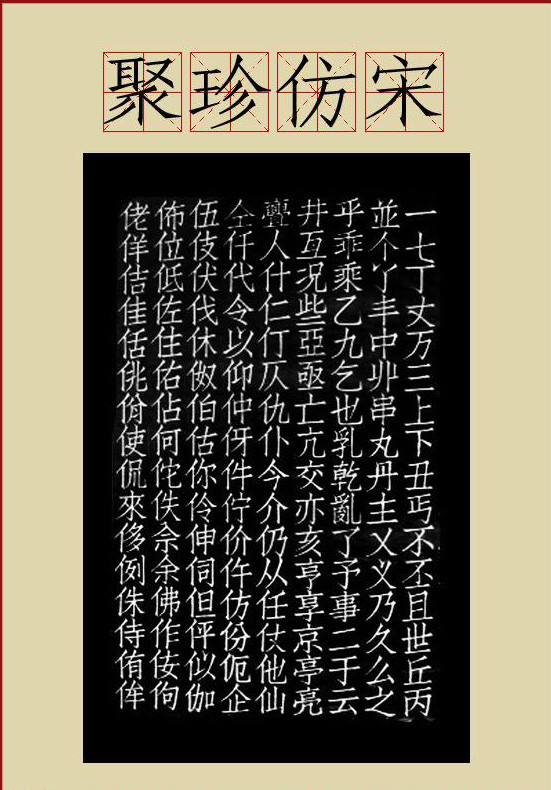 聚珍仿宋
一七丁丈万三上下丑丐不丕且世丘丙
並个丫丰中丱串丸丹主乂义乃久么之
乎乖乘乙九乞也乳乾亂了予事二于云
井亙况些亞亟亡亢交亦亥亨享京亭亮
亹人什仁仃仄仇仆今介仍从任仗他仙
仝仟代令以仰仲伢件佇价仵仿份企
伍伎伏伐休伯估你伶伸伺但伻似伽
佈位低佐住佑佔何佗佚佘余佛作佞佝
佬佯佶佳佸佻佾使侃來侈例侏侍侑侔